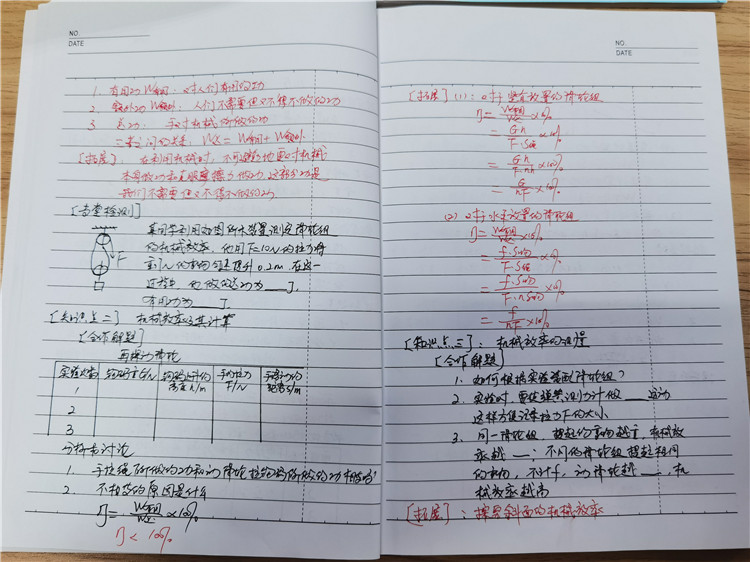 NO.
DATE
1. 有用功W有用: 对人们有用的功
2. 额外功W额外: 人们不需要但又不得不做的功
3 总功: 手对机械所做的功
二者之间的关系: W总 = W有用 + W额外
[拓展]: 在利用机械时, 不可避免地要对机械
本身做功和克服摩擦力做功, 这部分功是
我们不需要但又不得不做的功.
[当堂检测]
某同学利用如图所示装置测定滑轮组
的机械效率, 他用F=10N的拉力将
重N的物体匀速提升0.2m, 在这一
过程中, 他做的总功为____J,
有用功为____J.
F
[知识点二] 机械效率及其计算
[合作解题]
再探动滑轮
实验次数 钩码重G/N 钩码上升的高度h/m 手的拉力F/N 手移动的距离s/m
1
2
3
分析与讨论
1. 手拉绳所做的功和动滑轮拉钩码所做的功相等吗?
2. 不相等的原因是什么
η = W有用/W总 × 100%
η < 100%
NO.
DATE
[拓展] (1): 对于竖直放置的滑轮组
η = W有用/W总 × 100%
= Gh/F·S绳 × 100%
= Gh/F·nh × 100%
= G/nF × 100%
(2) 对于水平放置的滑轮组
η = W有用/W总 × 100%
= f·S物/F·S绳 × 100%
= f·S物/F·nS物 × 100%
= f/nF × 100%
[知识点三]: 机械效率的测量
[合作解题]
1. 如何根据实验装配滑轮组?
2. 实验时, 要使弹簧测力计做____运动
这样方便读拉力F的大小.
3. 同一滑轮组, 提起的重物越重, 机械效
率越____; 不同的滑轮组提起相同
的重物, 不计f, 动滑轮越____, 机
械效率越高
[拓展]: 探究斜面的机械效率